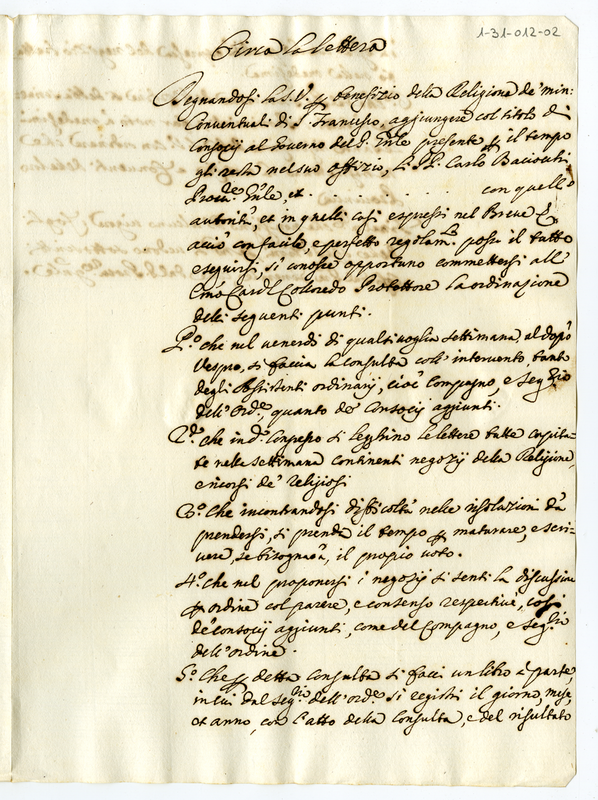 1-31-012-02
Circa la lettera
Degnandosi la S.V. ꝑ benefizio della Religione de' min:
Conventuali di S. Francesco, aggiungere col titolo di
Consocij al Governo del P. Gñle presente ꝑ il tempo
gli resta nel suo offizio, li PP. Carlo Baciocchi
Procre. Gñle, et . . . . . . . con quelle
autorità, et in quelli casi espressi nel Breve &
acciò con facile, e perfetto regolam.to possa il tutto
eseguirsi, si conosce opportuno commettersi all'
Emo Cardl Colloredo Protettore la ordinazione
delli seguenti punti.
P.o che nel venerdi di qualsivoglia settimana, al dopò
Vespro, si faccia la consulta coll' intervento tanto
degli Assistenti ordinarij, cioè Compagno, e Segrio
dell' Ord.e, quanto de' Consocij aggiunti.
2.o che in d.o Congresso si legghino le lettere tutte capita-
te nella settimana continenti negozij della Religione,
e ricorsi de' religiosi
3.o Che incontrandosi difficoltà nelle risolazioni da
prendersi, si prenda il tempo ꝑ maturare, e scri-
vere, se bisognarà, il proprio voto.
4.o che nel proporsi i negozij si senti la discussione
ꝑ ordine col parere, e consenso respectivè, così
de' consocij aggiunti, come del Compagno, e Seg.rio
dell' ordine.
5.o Che ꝑ detta Consulta si facci un libro à parte,
in cui dal Seg.rio dell' ord.e si registri il giorno, mese,
et anno, con l'atto della Consulta, e del risultato